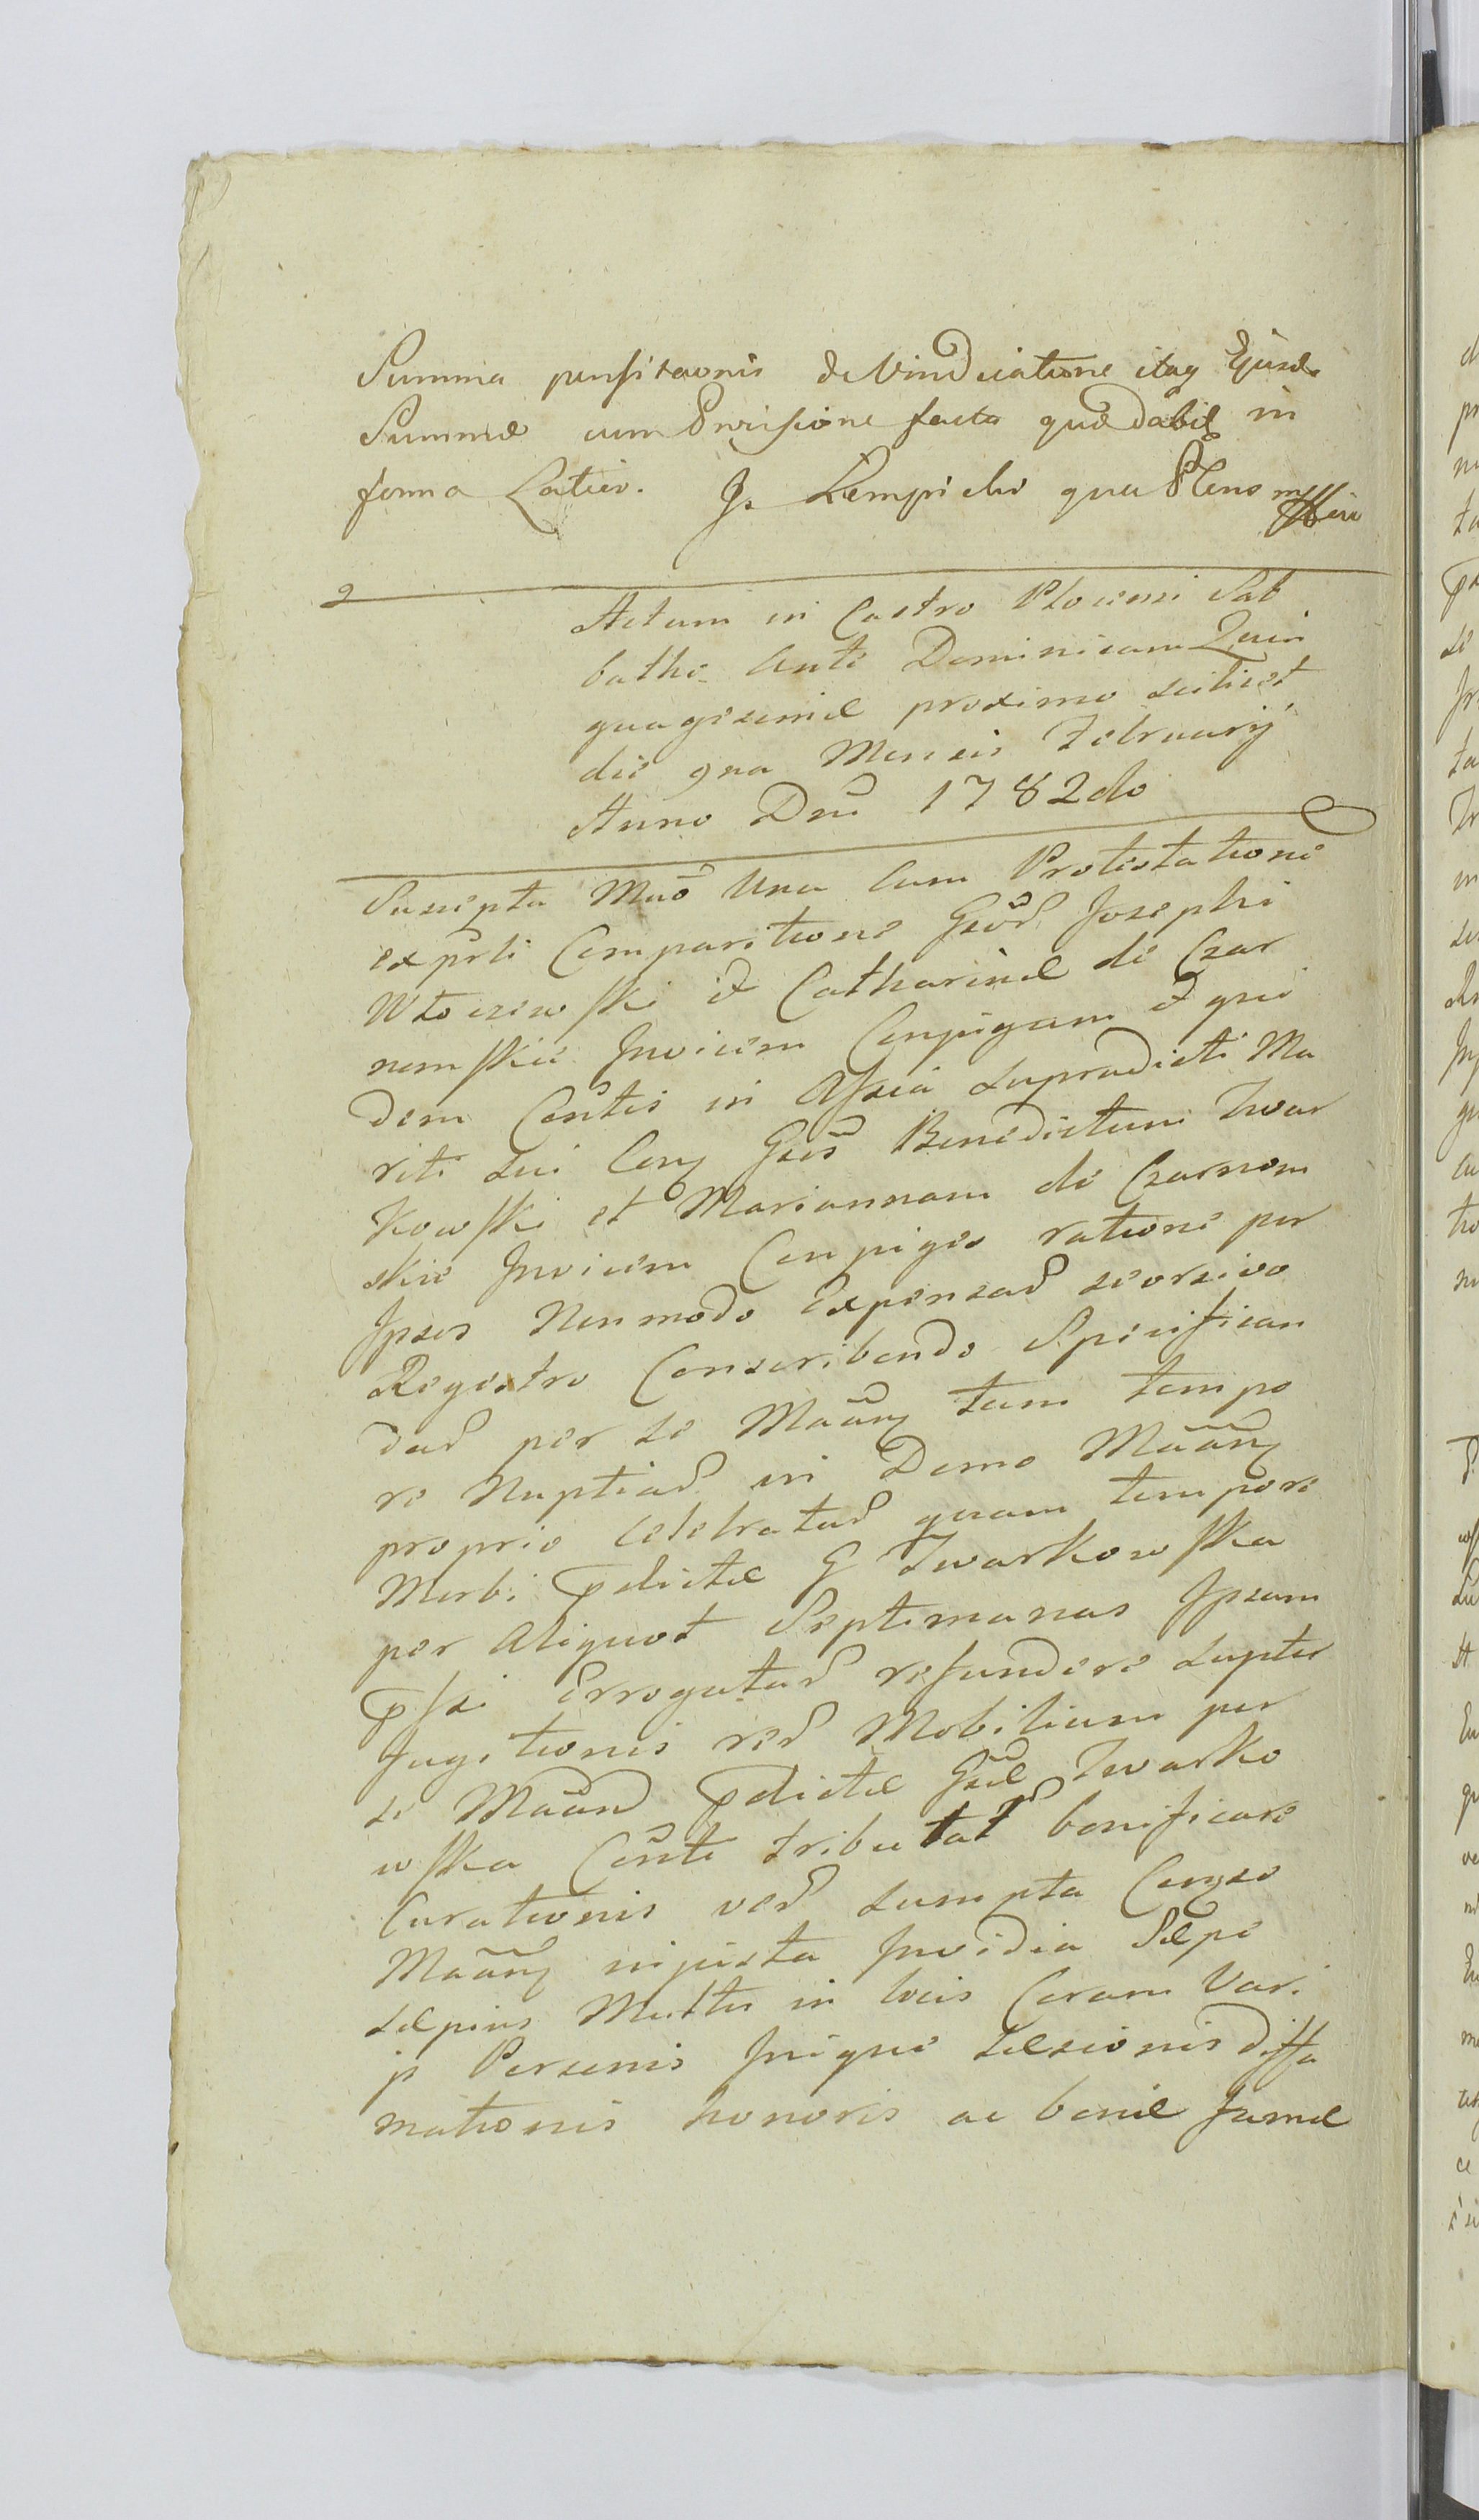 Summa pensitaonis de Vindicatione itaq Ejusd.
Summæ cum Provisione facta quæ dabit in
forma Latior. J. Lempicki qua Ptens mppria
2
Actum in Castro Plocensi Sab
batho Ante Dominicam Quin
quagesimæ proximo scilicet
die 9na Mensis Februarij
Anno Dni 1782do
Suscepta Mão Una Cum Protestatione
ex pṽti Comparitione Gsor Josephi
Włoczewski et Catharinæ de Czar
nomskie Invicem Conjugum et qui
dem Consortis in Assia supradicti Ma
riti sui Conq Gsos Benedictum Twar
kowski et Mariannam de Czarnom
skie Invicem Conjuges ratione per
Ipsos Nonmodo Expensar seorsivo
Regestro Conscribendo Specifican
dar per se Mãang tum tempo
re Nuptiar in Domo Mãang
proprio Celebratar quam tempore
Morbi pdictæ G Twarkowska
per Aliquot Septimanas Ipsam
pssi Errogatar refundere suptus
fugitionis rer Mobilium per
se Mãan pdictæ Gsæ Twarko
wska Consti tributar bonificare
Curationis ver sumpta Conqso
Mãang injusta Invidia Sæpe
sæpius Multis in locis Coram Vari
js Personis Inique Læsionis diffa
mationis honoris ac bonæ famæ